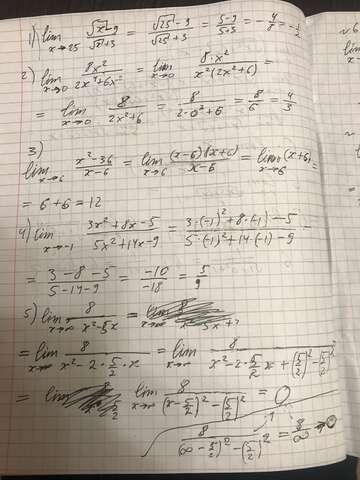 1) lim x→25 (√x - 9)/(√x + 3) = (√25 - 9)/(√25 + 3) = (5-9)/(5+3) = -4/8 = -1/2
2) lim x→0 8x²/(2x⁴+6x²) = lim x→0 8·x²/(x²(2x²+6)) =
= lim x→0 8/(2x²+6) = 8/(2·0²+6) = 8/6 = 4/3
3)
lim x→6 (x²-36)/(x-6) = lim x→6 (x-6)(x+6)/(x-6) = lim x→6 (x+6) =
= 6+6 = 12
4) lim x→-1 (3x²+8x-5)/(5x²+14x-9) = (3·(-1)²+8·(-1)-5)/(5·(-1)²+14·(-1)-9) =
= (3-8-5)/(5-14-9) = -10/-18 = 5/9
5) lim x→∞ 8/(x²-5x) = lim x→∞
= lim x→∞ 8/(x²-2·5/2·x) = lim x→∞ 8/(x²-2·5/2x+(5/2)²-(5/2)²)
= lim lim x→∞ 8/((x-5/2)²-(5/2)²) = 0
8/((∞-5/2)²-(5/2)²) = 8/∞ → 0